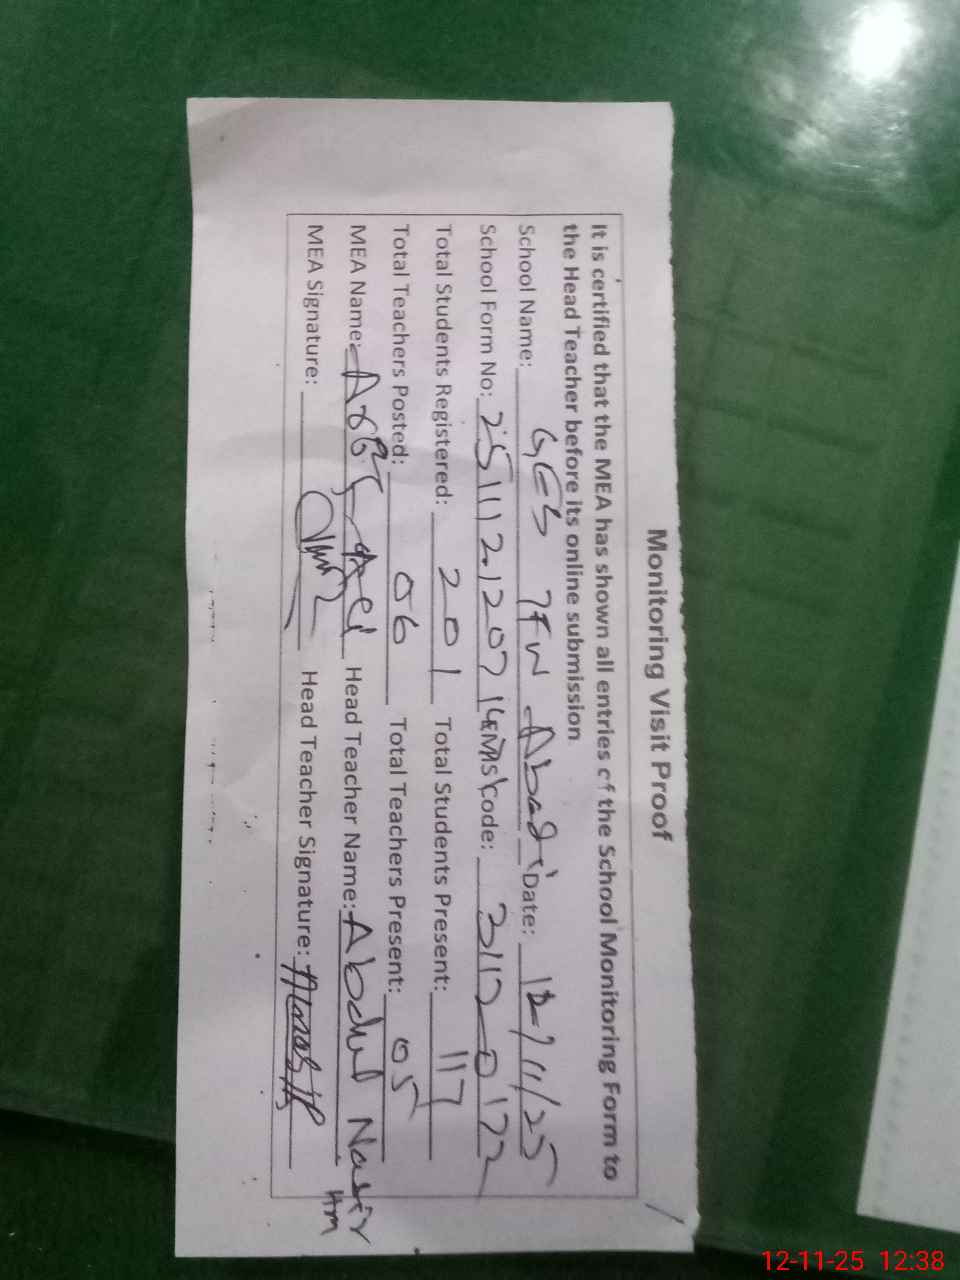 Monitoring Visit Proof
It is certified that the MEA has shown all entries of the School Monitoring Form to
the Head Teacher before its online submission
School Name: GES 7FW Abad Date: 12/11/25
School Form No: Code:
Total Students Registered: 201 Total Students Present: 117
Total Teachers Posted: 06 Total Teachers Present: 05
MEA Name: Head Teacher Name: Abdul Nasir
HM
MEA Signature: Head Teacher Signature:
12-11-25 12:38